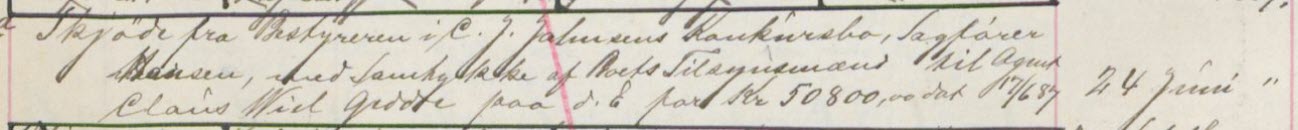 Skjøde fra Bestyreren i C. J. Jahnsens Konkursbo, Sagfører
Hansen, med Samtykke af Boets Tilsynsmænd til Agent
Claus Wiel Gedde paa d. E for Kr 50800, dat 17/6 87 24 Juni "